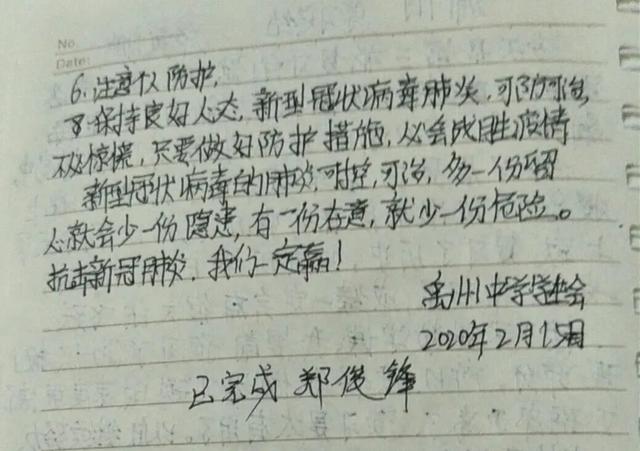 No.
Date:
6.注意仪防护.
8.保持良好人态,新型冠状病毒肺炎,可防可治,
不必惊慌,只要做好防护措施,必会战胜疫情
新型冠状病毒的肺炎,可控,可治,多一份留
心就会少一份隐患,有一份在意,就少一份危险。
抗击新冠肺炎,我们一定赢!
禹州中学学生会
2020年2月15日
已完成 郑俊锋